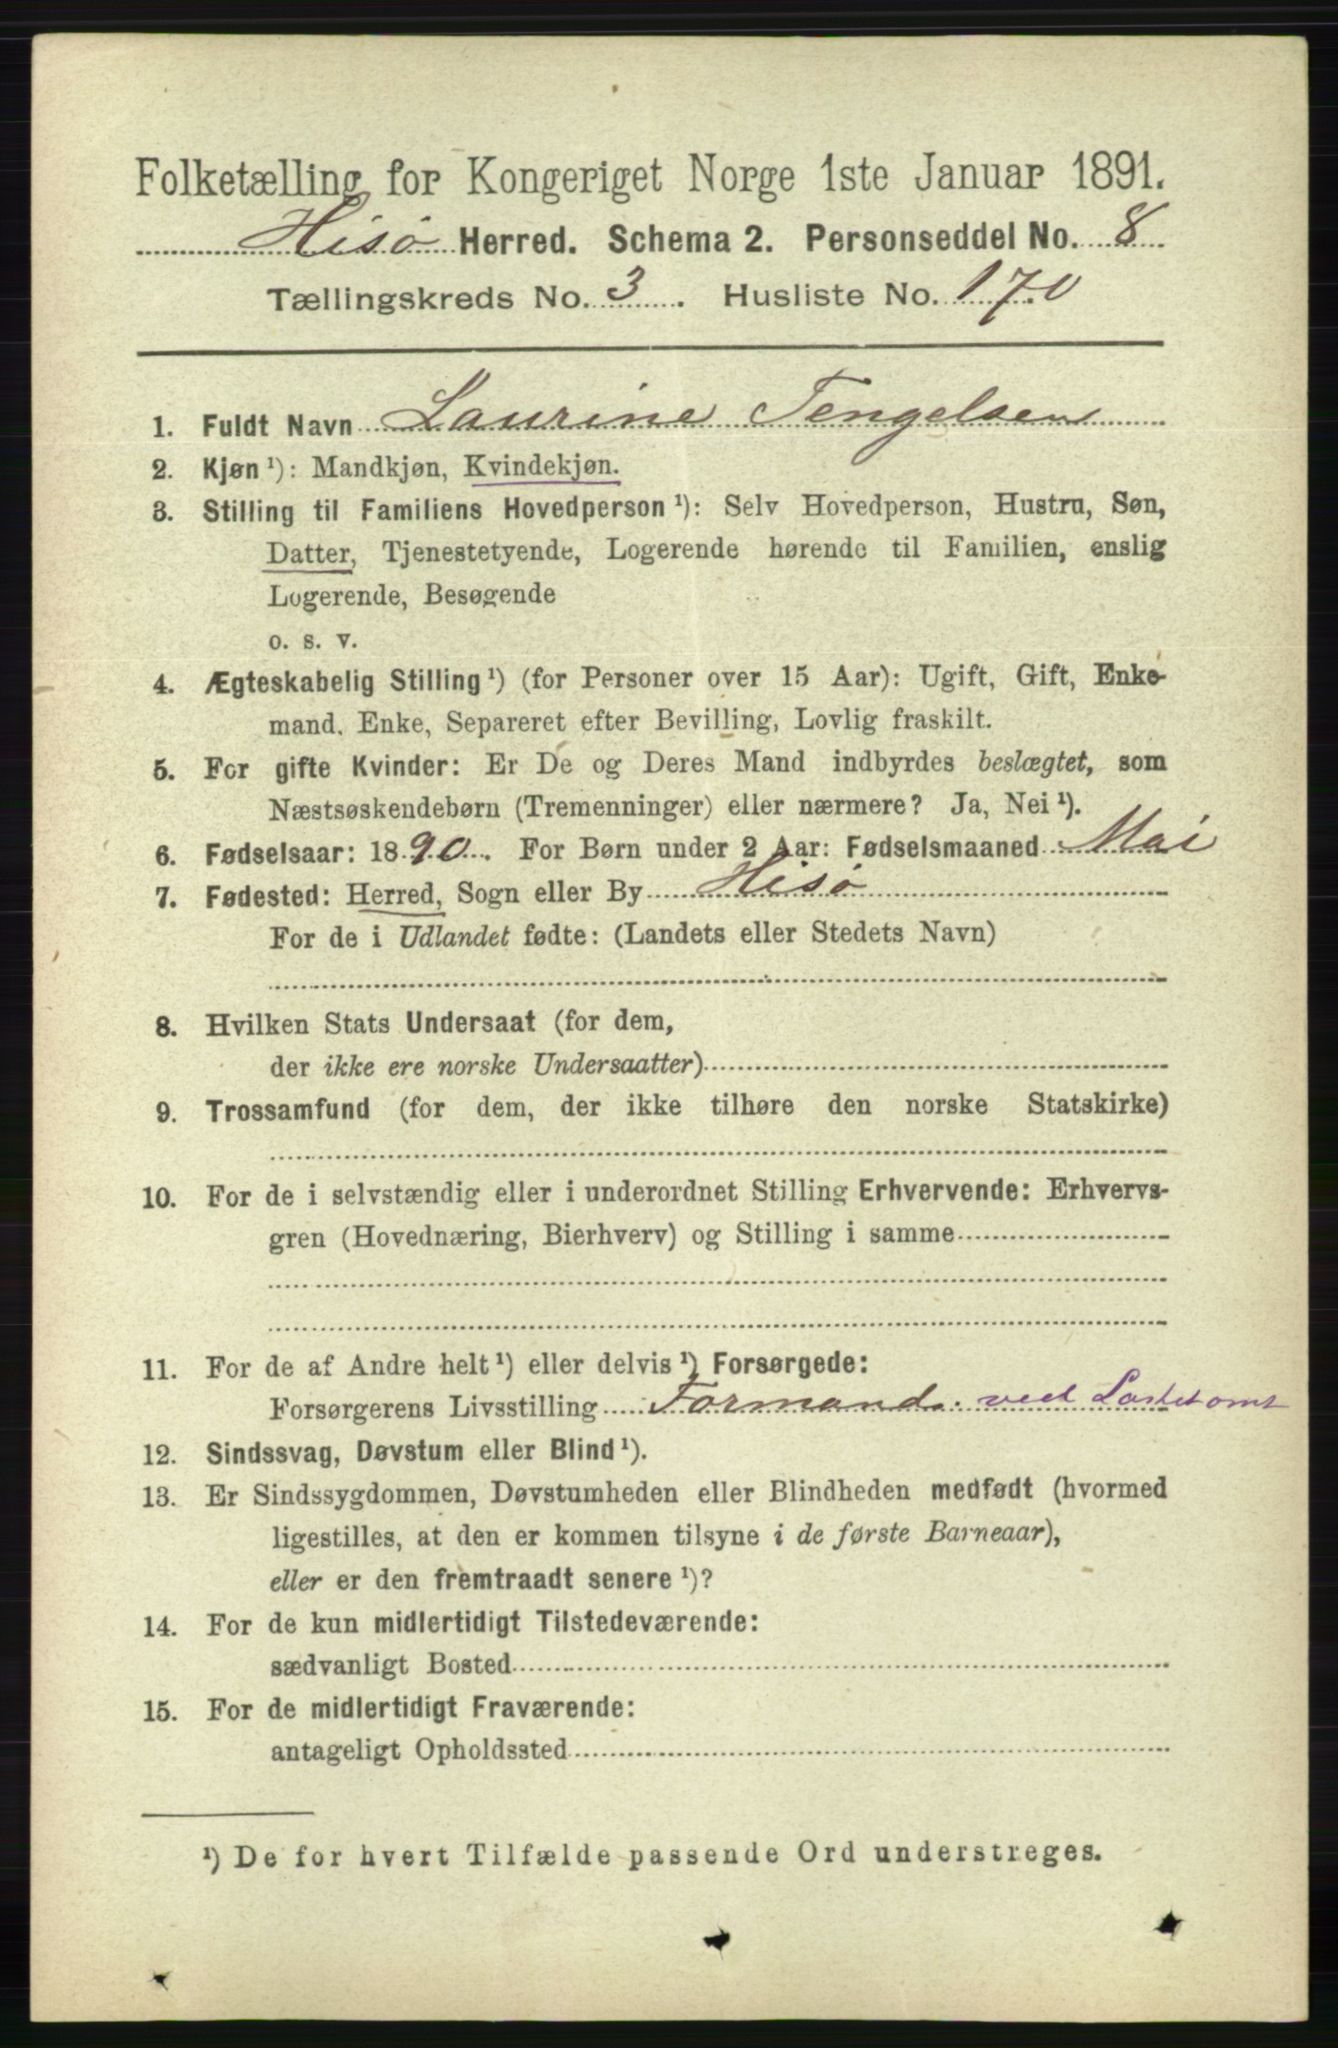 Folketælling for Kongeriget Norge 1ste Januar 1891.
Hisø Herred. Schema 2. Personseddel No. 8
Tællingskreds No. 3. Husliste No. 170
1. Fuldt Navn Laurine Tengelsen
2. Kjøn ¹): Mandkjøn, Kvindekjøn.
3. Stilling til Familiens Hovedperson ¹): Selv Hovedperson, Hustru, Søn,
Datter, Tjenestetyende, Logerende hørende til Familien, enslig
Logerende, Besøgende
o. s. v.
4. Ægteskabelig Stilling ¹) (for Personer over 15 Aar): Ugift, Gift, Enke-
mand, Enke, Separeret efter Bevilling, Lovlig fraskilt.
5. For gifte Kvinder: Er De og Deres Mand indbyrdes beslægtet, som
Næstsøskendebørn (Tremenninger) eller nærmere? Ja, Nei ¹).
6. Fødselsaar: 1890. For Børn under 2 Aar: Fødselsmaaned Mai
7. Fødested: Herred, Sogn eller By Hisø
For de i Udlandet fødte: (Landets eller Stedets Navn)
8. Hvilken Stats Undersaat (for dem,
der ikke ere norske Undersaatter)
9. Trossamfund (for dem, der ikke tilhøre den norske Statskirke)
10. For de i selvstændig eller i underordnet Stilling Erhvervende: Erhvervs-
gren (Hovednæring, Bierhverv) og Stilling i samme
11. For de af Andre helt ¹) eller delvis ¹) Forsørgede:
Forsørgerens Livsstilling Formand. ved
12. Sindssvag, Døvstum eller Blind ¹).
13. Er Sindssygdommen, Døvstumheden eller Blindheden medfødt (hvormed
ligestilles, at den er kommen tilsyne i de første Barneaar),
eller er den fremtraadt senere ¹)?
14. For de kun midlertidigt Tilstedeværende:
sædvanligt Bosted
15. For de midlertidigt Fraværende:
antageligt Opholdssted
¹) De for hvert Tilfælde passende Ord understreges.